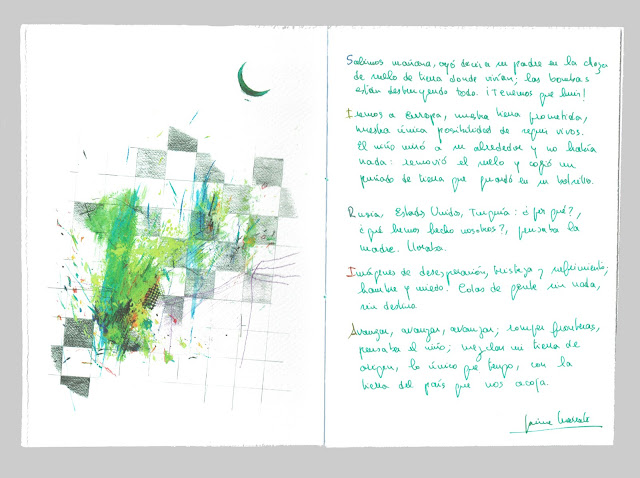 Salimos mañana, oyó decir a su padre en la choza
de suelo de tierra donde vivían; las bombas
están destruyendo todo. ¡Tenemos que huir!
Iremos a Europa, nuestra tierra prometida,
nuestra única posibilidad de seguir vivos.
El niño miró a su alrededor y no había
nada: removió el suelo y cogió un
puñado de tierra que guardó en su bolsillo.
Rusia, Estados Unidos, Turquía: ¿por qué?,
¿qué hemos hecho nosotros?, pensaba la
madre. Lloraba.
Imágenes de desesperación, tristeza y sufrimiento;
hambre y miedo. Colas de gente sin nada,
sin destino
Avanzar, avanzar, avanzar; romper fronteras,
pensaba el niño; mezclar mi tierra de
origen, lo único que tengo, con la
tierra del país que nos acoja.